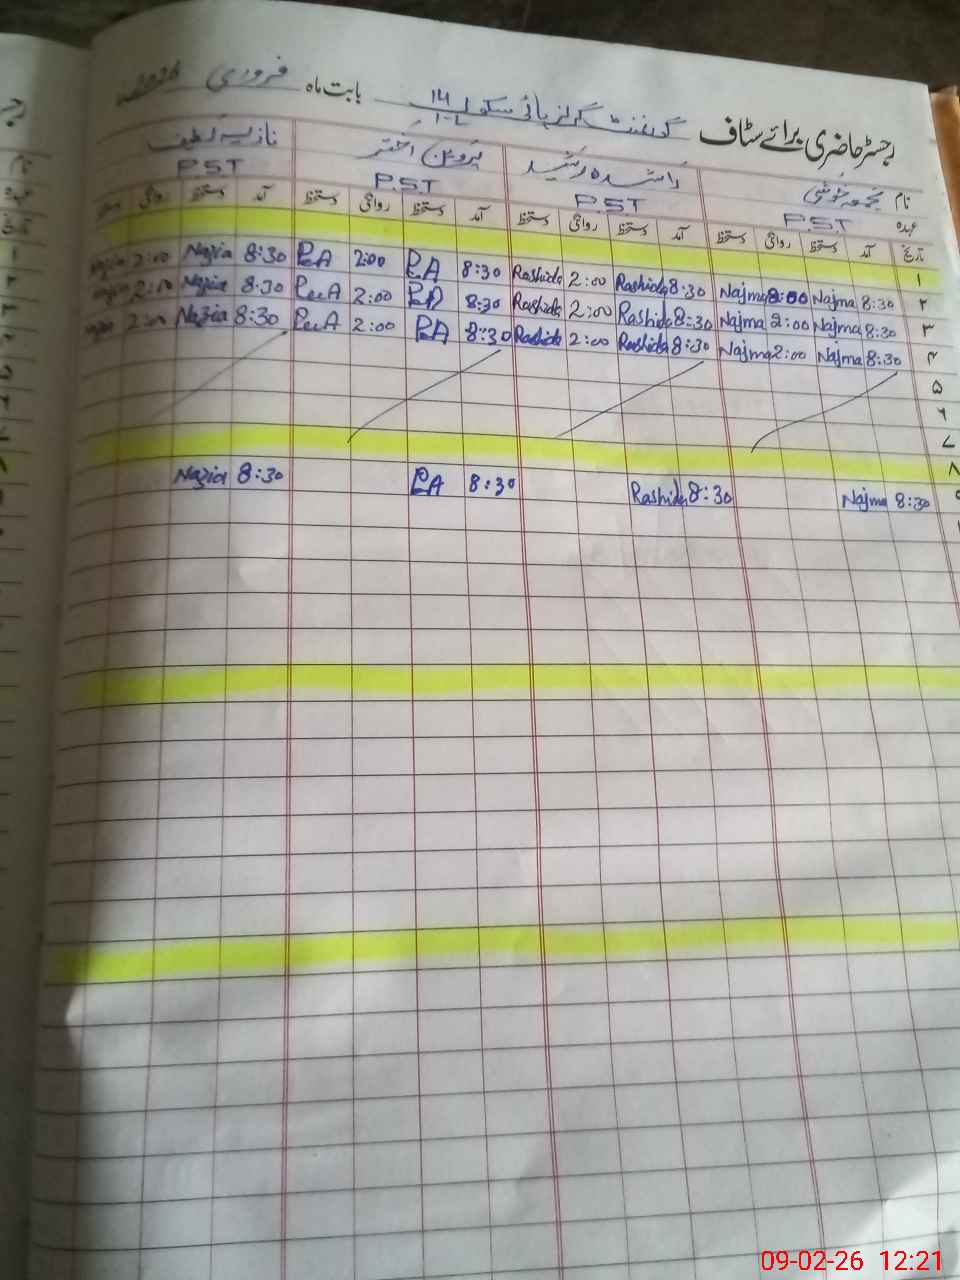 رجسٹر حاضری برائے سٹاف گورنمنٹ گرلز ہائی سکول 14 1-L بابت ماہ فروری 2026ء
نام نجمہ خوشی راشدہ رشید پروین اختر نازیہ لطیف
عہدہ P.S.T P.S.T P.S.T P.S.T
تاریخ آمد دستخط روانگی دستخط آمد دستخط روانگی دستخط آمد دستخط روانگی دستخط آمد دستخط روانگی دستخط
۱
۲ 8:30 Najma 8:00 Najma 8:30 Rashida 2:00 Rashida 8:30 P.A 2:00 P.A 8:30 Nazia 2:00 Nazia
۳ 8:30 Najma 2:00 Najma 8:30 Rashida 2:00 Rashida 8:30 P.A 2:00 P.A 8:30 Nazia 2:00 Nazia
۴ 8:30 Najma 2:00 Najma 8:30 Rashida 2:00 Rashida 8:30 P.A 2:00 P.A 8:30 Nazia 2:00 Nazia
۵
۶
۷
۸
۹ 8:30 Najma 8:30 Rashida 8:30 P.A 8:30 Nazia
09-02-26 12:21